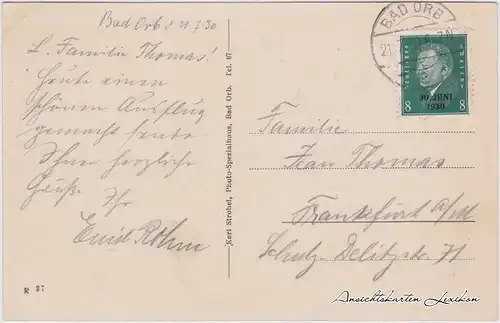 Bad Orb d 21.7.30
L. Familie Thomas!
Heute einen
schönen Ausflug
gemacht sende
Ihnen herzliche
Grüße. Ihr
Karl Strobel, Photo-Spezialhaus, Bad Orb. Tel. 67
R 37
BAD ORB
21.
8 8
30. JUNI
1930
Familie
Jean Thomas
Frankfurt a/M
Schulz-Delitzstr. 71
Ansichtskarten Lexikon